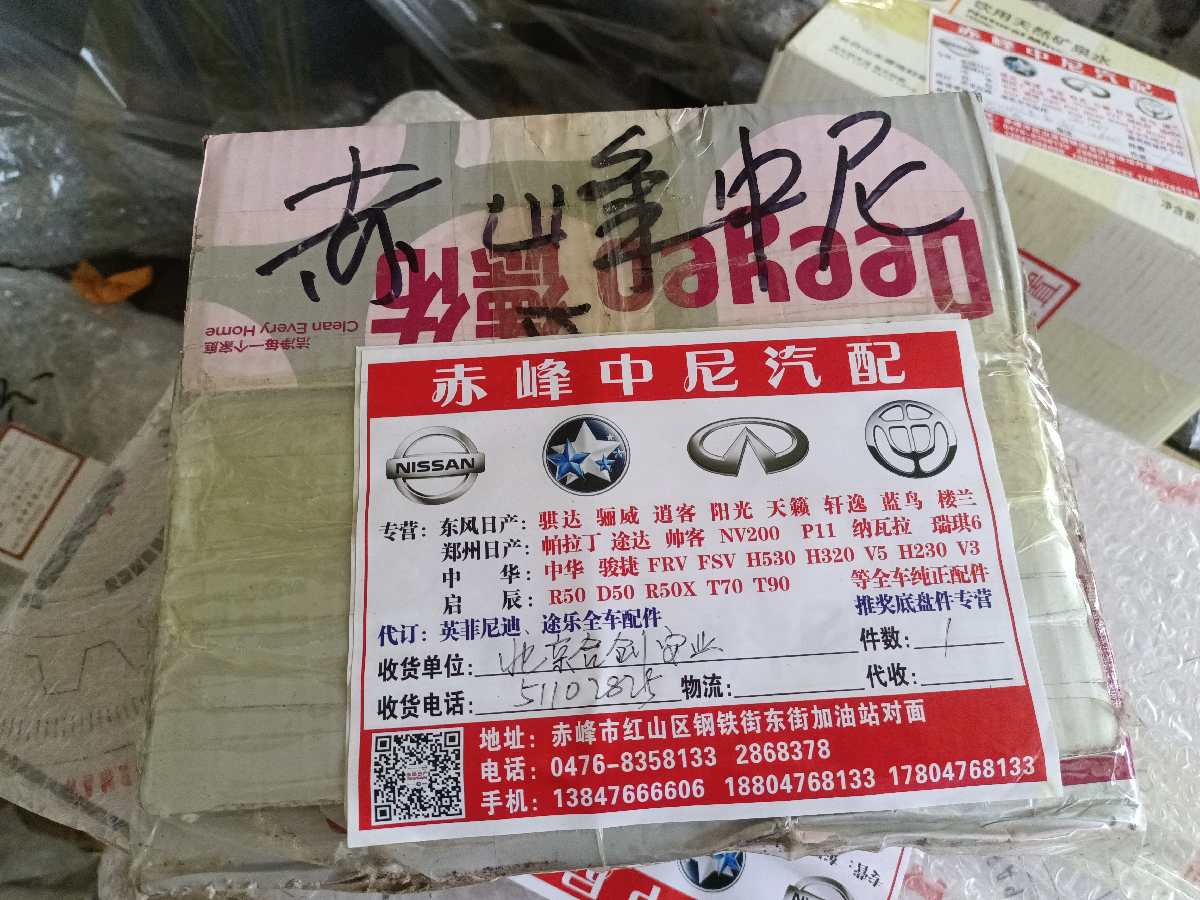 赤峰中尼
Deeyeo
德佑
Clean Every Home
洁净每一个家庭
赤峰中尼汽配
NISSAN
专营：东风日产：骐达 骊威 逍客 阳光 天籁 轩逸 蓝鸟 楼兰
郑州日产：帕拉丁 途达 帅客 NV200 P11 纳瓦拉 瑞琪6
中 华：中华 骏捷 FRV FSV H530 H320 V5 H230 V3
启 辰：R50 D50 R50X T70 T90 等全车纯正配件
代订：英菲尼迪、途乐全车配件 推奖底盘件专营
收货单位：北京合创实业 件数：1
收货电话：51102825 物流： 代收：
地址：赤峰市红山区钢铁街东街加油站对面
电话：0476-8358133 2868378
手机：13847666606 18804768133 17804768133
饮用天然矿泉水
赤峰中尼汽配
净含量